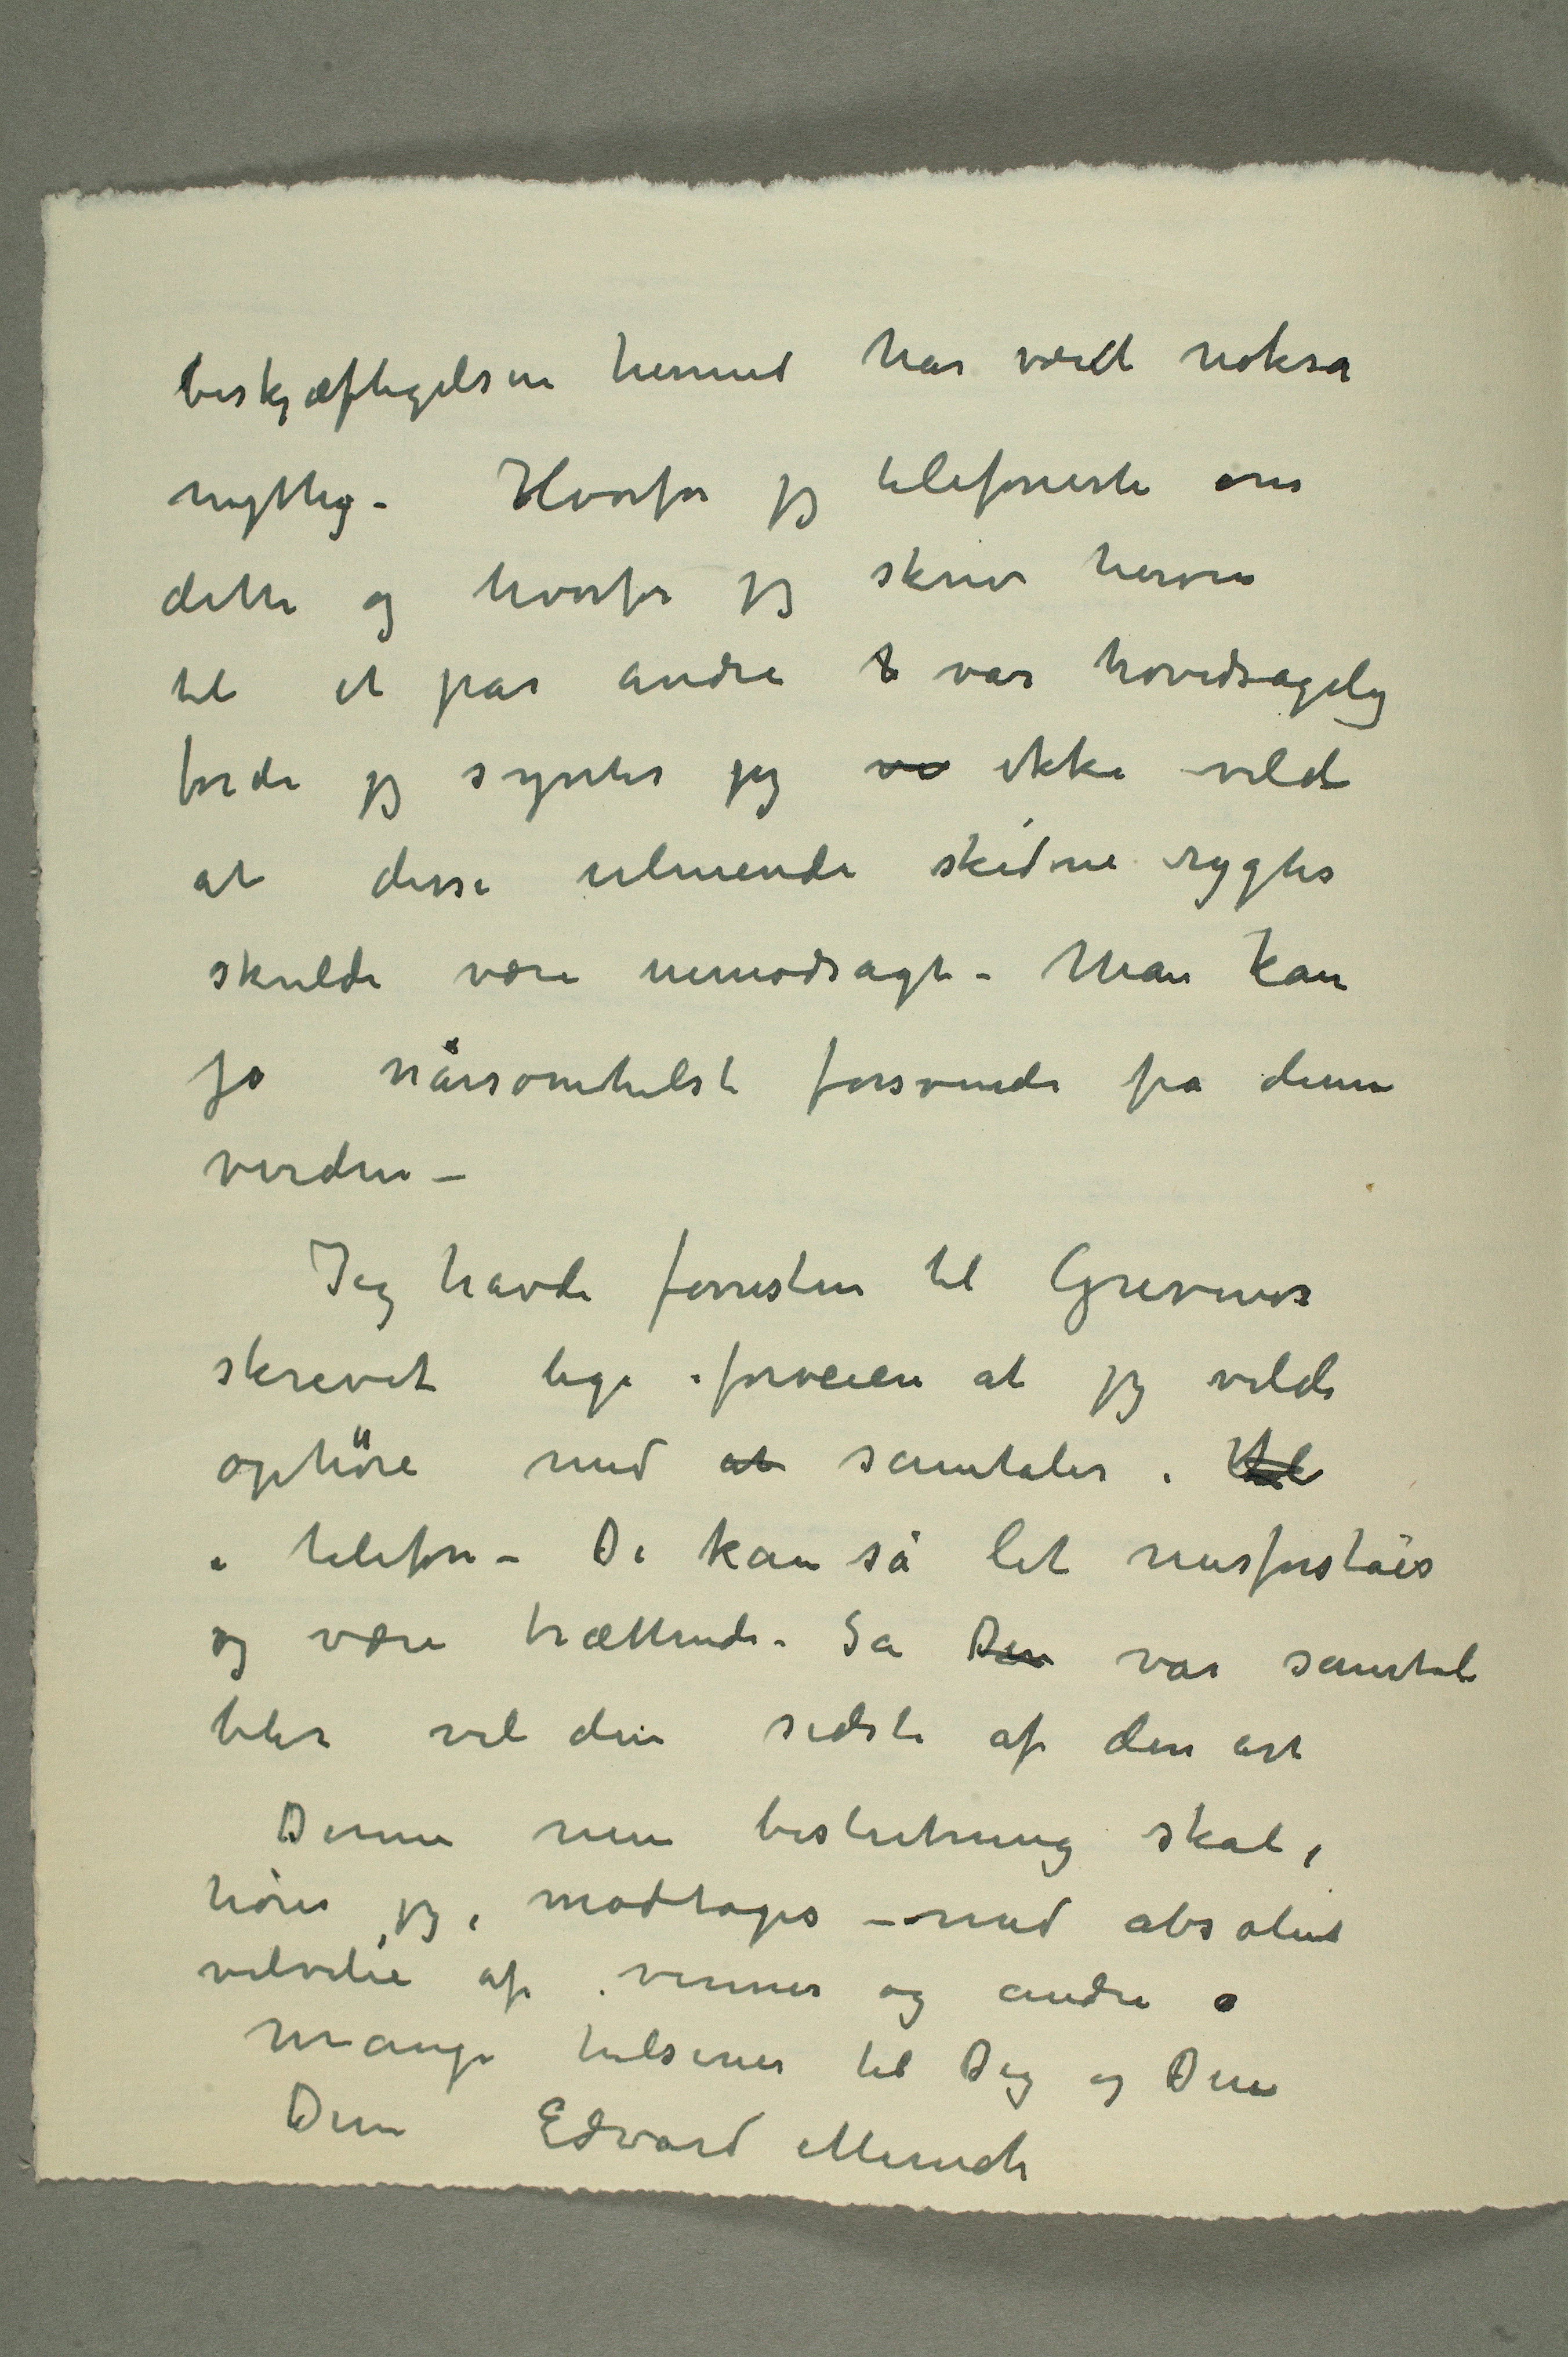 beskjæftigelsen hermed har værdt noksa
nyttig – Hvorfor jeg telefonerte om
dette og hvorfor jeg skriver herom
til et par andre t var hovedsagelig
fordi jeg syntes jeg ve ikke vilde
at disse ulmende skidne rygter
skulde være uimodsagt – Man kan
jo nårsomhelst forsvinde fra denne
verden –
Jeg havde forresten til Grevenor
skrevet lige i forveien at jeg vilde
ophöre med at samtaler i
i telefon – De kan så let misforståes
og være trættende – Sa Den var samtale
blir vel den sidste af den art
Denne min beslutning skal,
hører jeg, modtages – med absolut
velvilie af venner og andre
Mange hilsener til Dig og Dine
Din Edvard Munch